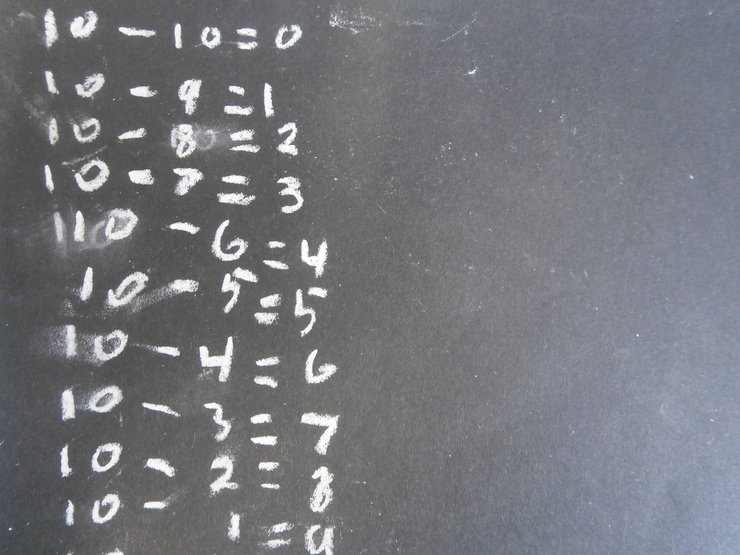 10 - 10 = 0
10 - 9 = 1
10 - 8 = 2
10 - 7 = 3
110 - 6 = 4
10 - 5 = 5
10 - 4 = 6
10 - 3 = 7
10 - 2 = 8
10 - 1 = 9